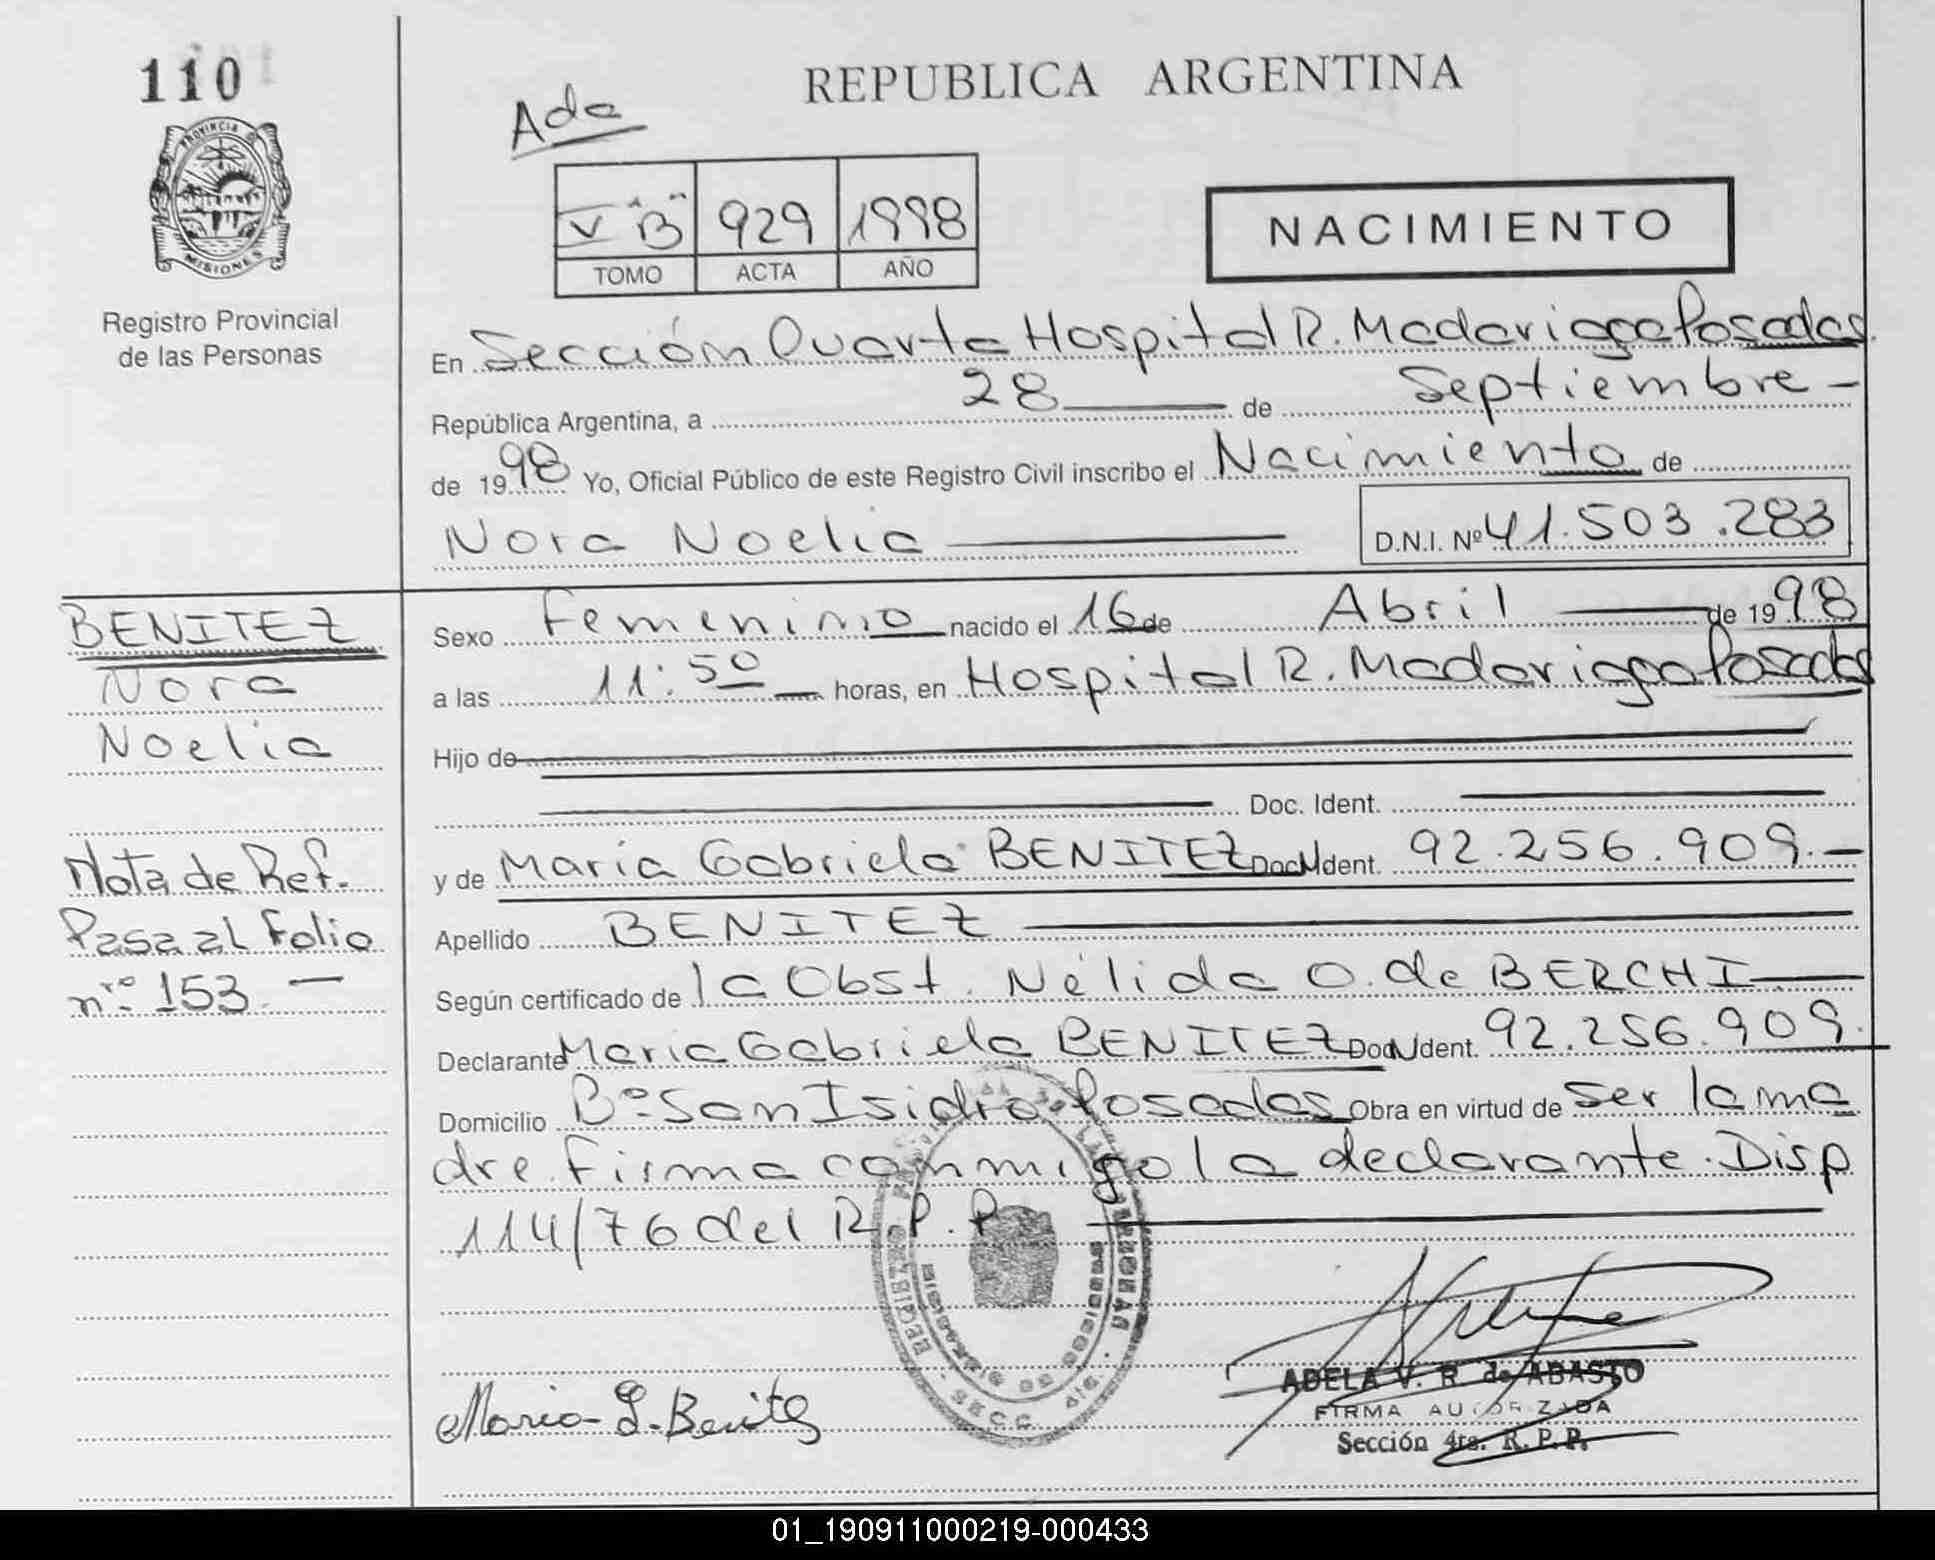 110
PROVINCIA DE
MISIONES
Registro Provincial
de las Personas
Ada
REPUBLICA ARGENTINA
V "B" 929 1998
TOMO ACTA AÑO
NACIMIENTO
En Sección Cuarta Hospital R. Madariaga Posadas
República Argentina, a 28 de Septiembre -
de 1998 Yo, Oficial Público de este Registro Civil inscribo el Nacimiento de
Nora Noelia D.N.I. Nº 41.503.283
BENITEZ
Nora
Noelia
Nota de Ref.
Pasa al Folio
nro: 153. -
Sexo Femenino nacido el 16 de Abril de 1998
a las 11:50 horas, en Hospital R. Madariaga Posadas
Hijo de
Doc. Ident.
y de María Gabriela BENITEZ Doc. Ident. 92.256.909.-
Apellido BENITEZ
Según certificado de la Obst. Nélida O. de BERCHI
Declarante Maria Gabriela BENITEZ Doc. Ident. 92.256.909.
Domicilio Bº San Isidro Posadas Obra en virtud de ser la ma
dre. Firma conmigo la declarante. Disp
114/76 del R.P.P
Maria G. Benitez
ADELA V. R. de ABASTO
FIRMA AUTORIZADA
Sección 4ta. R.P.P.
01_190911000219-000433